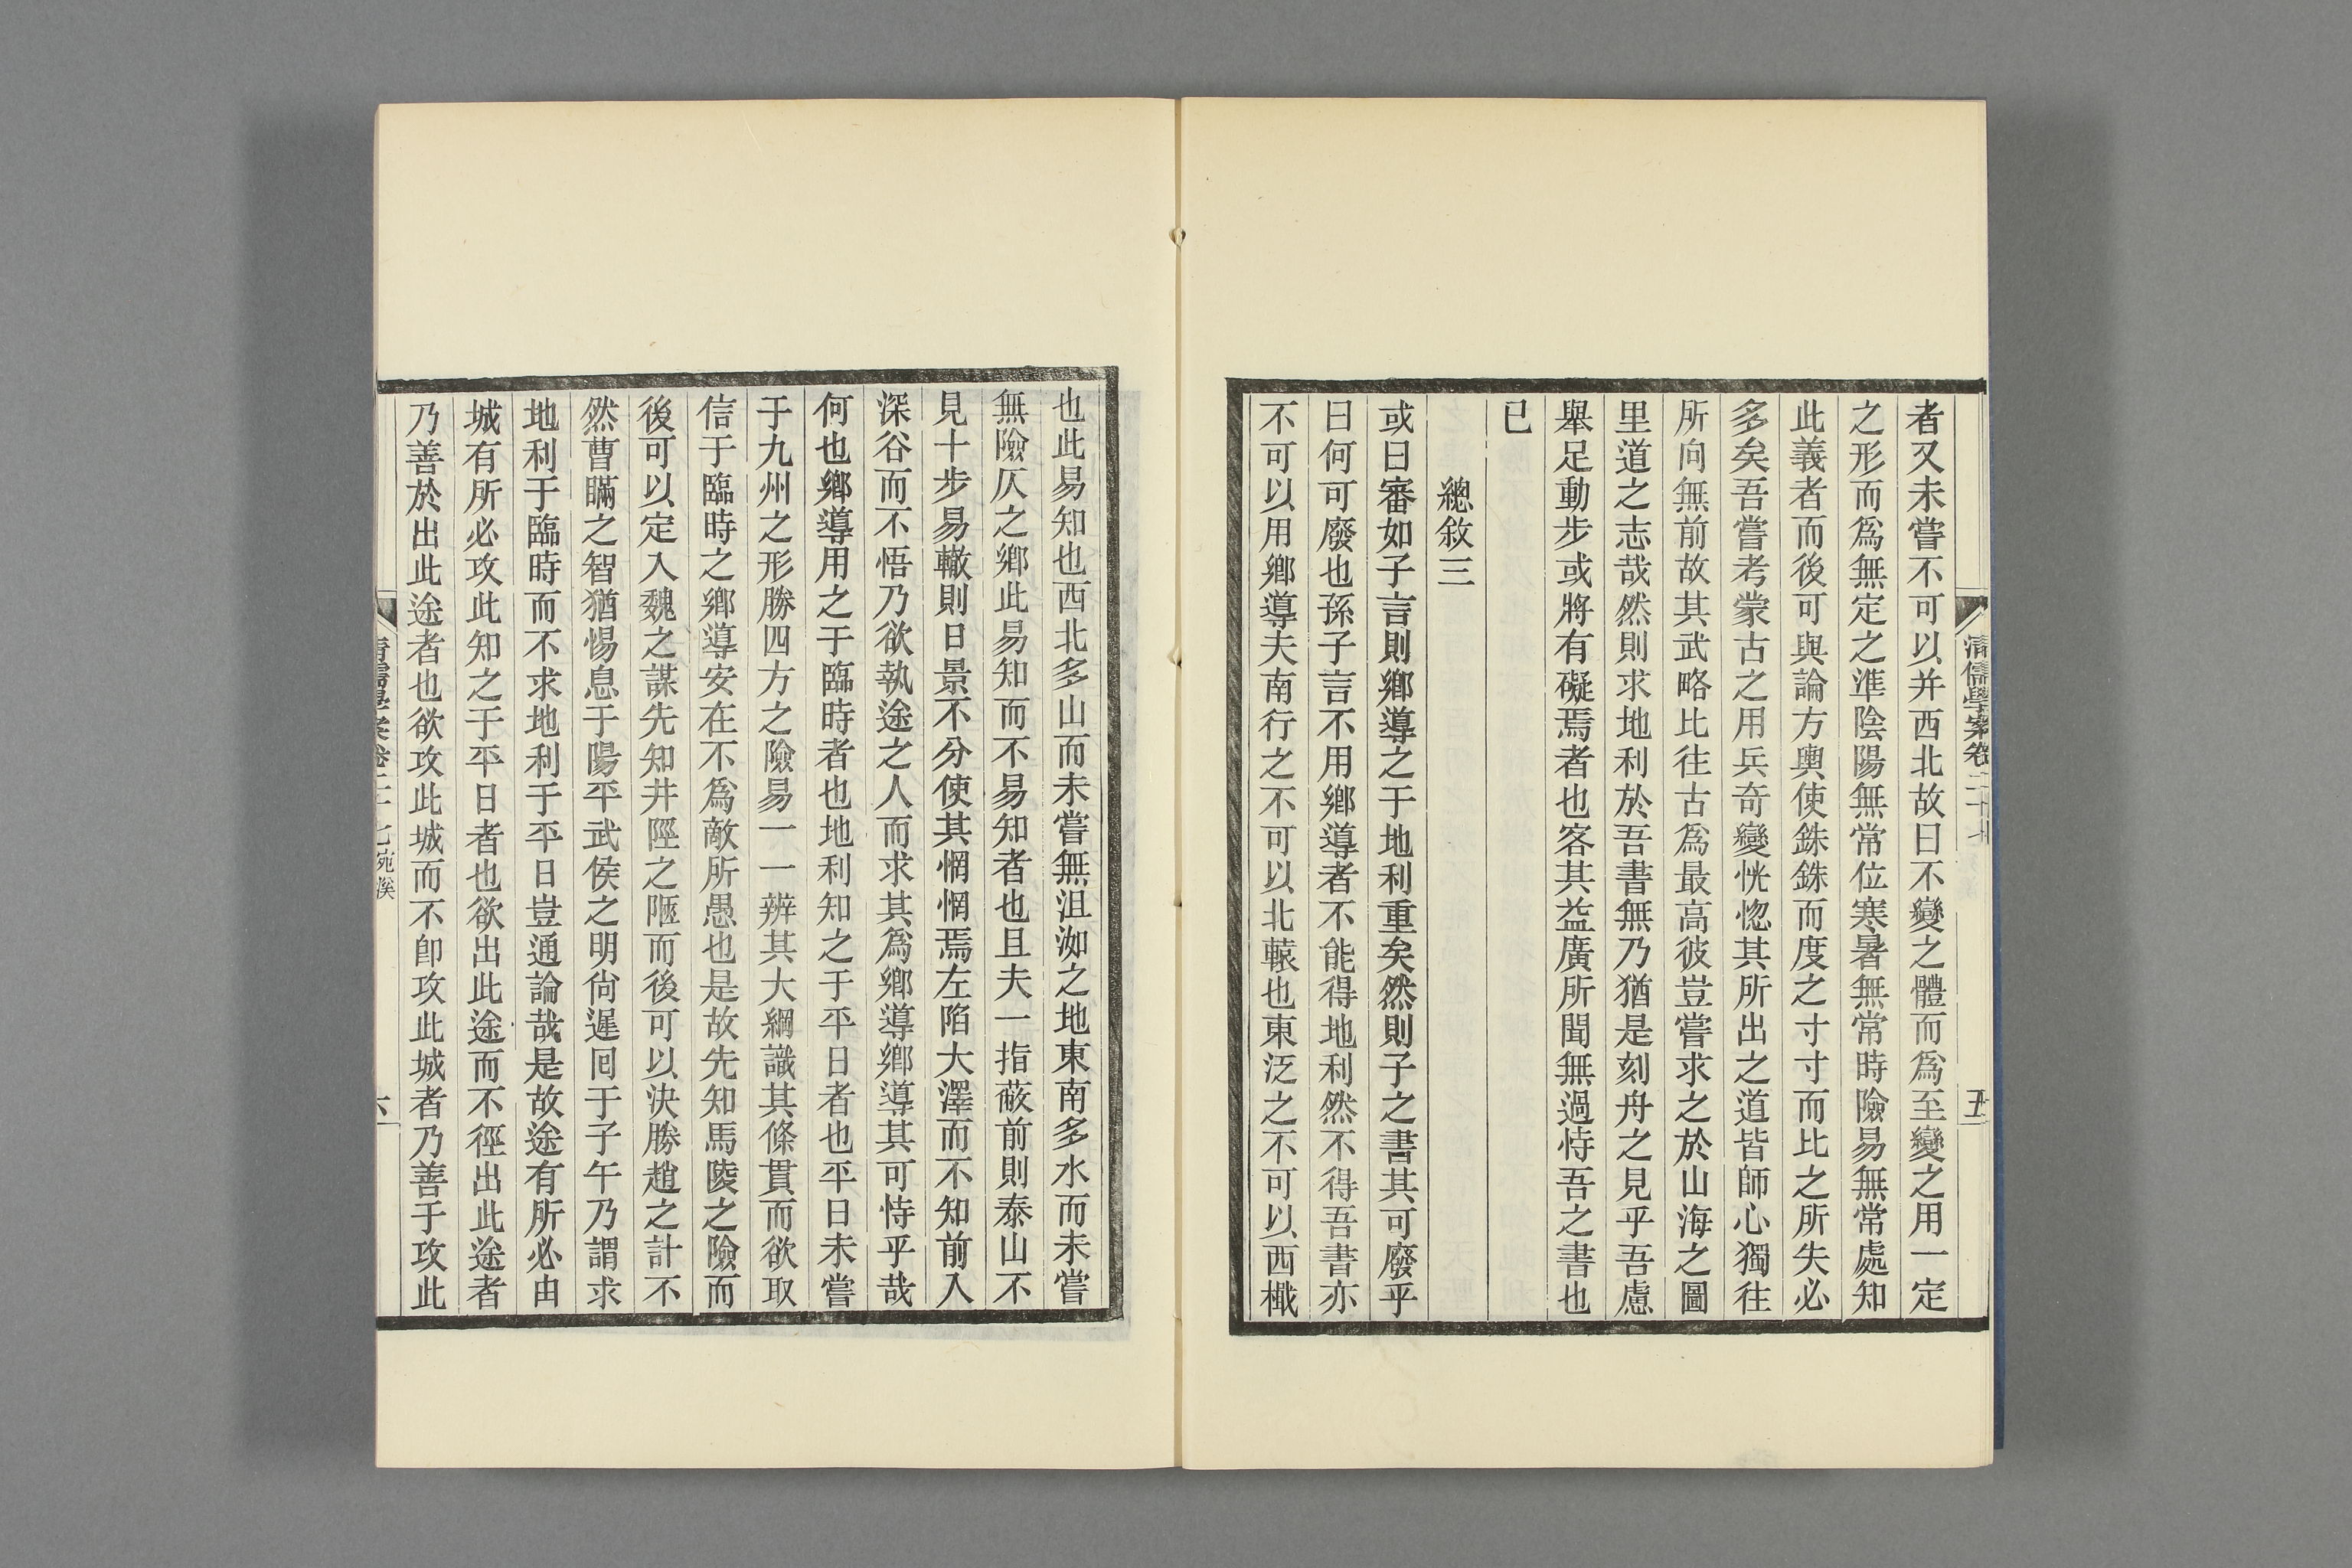 清儒學案卷二十七
五
者又未嘗不可以并西北故曰不變之體而爲至變之用一定
之形而爲無定之準陰陽無常位寒暑無常時險易無常處知
此義者而後可與論方輿使銖銖而度之寸寸而比之所失必
多矣吾嘗考蒙古之用兵奇變恍惚其所出之道皆師心獨往
所向無前故其武略比往古爲最高彼豈嘗求之於山海之圖
里道之志哉然則求地利於吾書無乃猶是刻舟之見乎吾慮
舉足動步或將有礙焉者也客其益廣所聞無過恃吾之書也
已
總敘三
或曰審如子言則鄉導之于地利重矣然則子之書其可廢乎
曰何可廢也孫子言不用鄉導者不能得地利然不得吾書亦
不可以用鄉導夫南行之不可以北轅也東泛之不可以西檝
也此易知也西北多山而未嘗無沮洳之地東南多水而未嘗
無險仄之鄉此易知而不易知者也且夫一指蔽前則泰山不
見十步易轍則日景不分使其惘惘焉左陷大澤而不知前入
深谷而不悟乃欲執途之人而求其爲鄉導鄉導其可恃乎哉
何也鄉導用之于臨時者也地利知之于平日者也平日未嘗
于九州之形勝四方之險易一一辨其大綱識其條貫而欲取
信于臨時之鄉導安在不爲敵所愚也是故先知馬陵之險而
後可以定入魏之謀先知井陘之陿而後可以決勝趙之計不
然曹瞞之智猶惕息于陽平武侯之明尙遲回于子午乃謂求
地利于臨時而不求地利于平日豈通論哉是故途有所必由
城有所必攻此知之于平日者也欲出此途而不徑出此途者
乃善於出此途者也欲攻此城而不卽攻此城者乃善于攻此
清儒學案卷二十七 宛溪
六